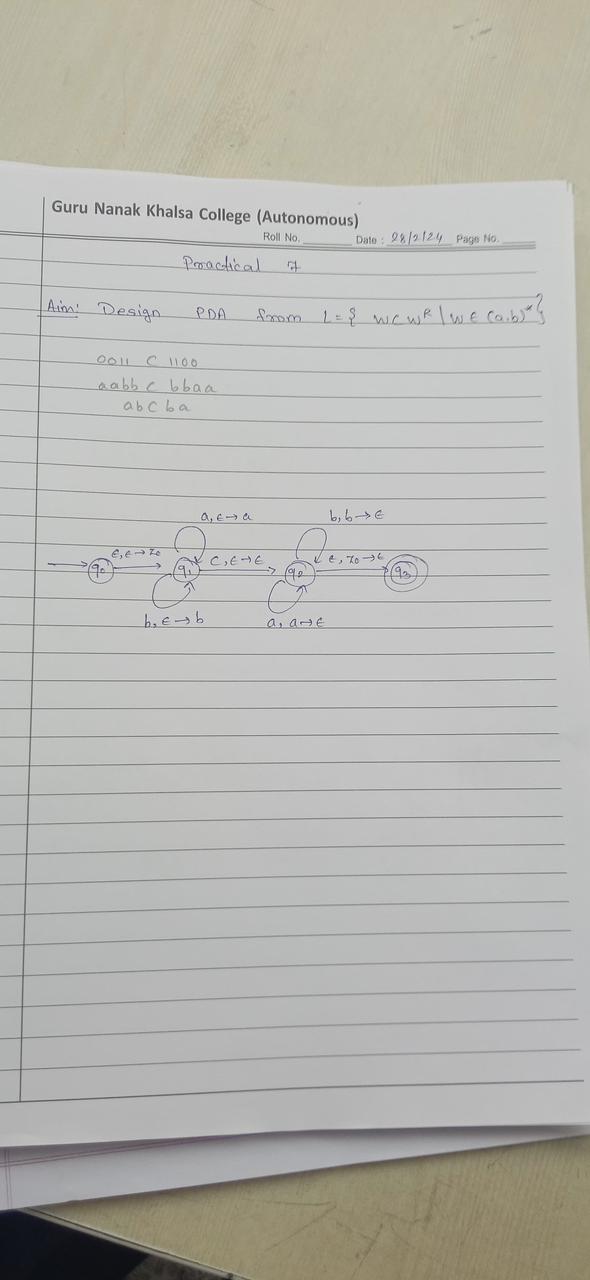 Guru Nanak Khalsa College (Autonomous)
Roll No. Date : 28/2/24 Page No.
Practical 7
Aim: Design PDA from L = { wcwᴿ | w ∈ (a,b)* }
0011 C 1100
aabb C bbaa
abCba
a, ε → a b, b → ε
ε, ε → z₀ C, ε → ε ε, z₀ → ε
q₀ q₁ q₂ q₃
b, ε → b a, a → ε